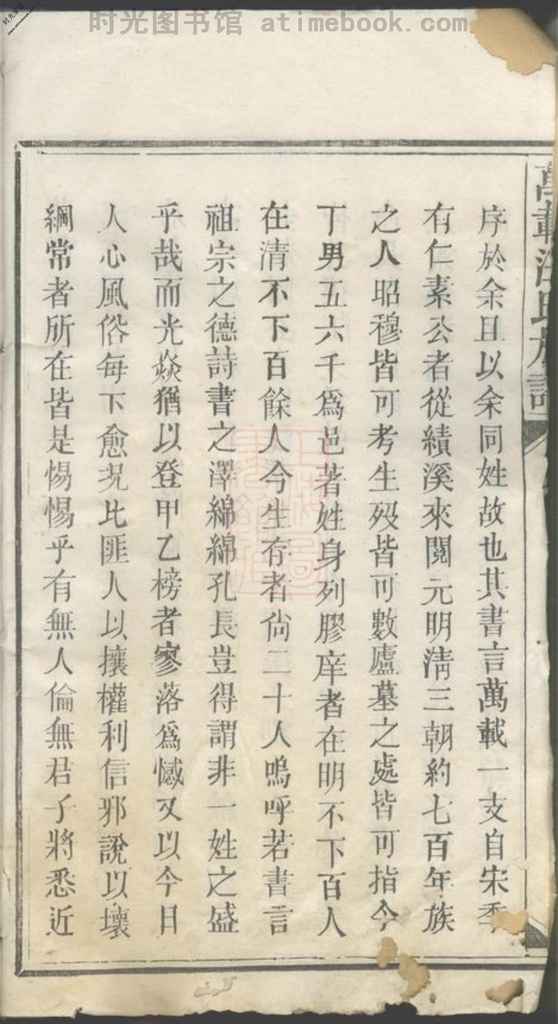 时光图书馆 atimebook.com
序於余且以余同姓故也其書言萬載一支自宋季
有仁素公者從績溪來閱元明清三朝約七百年族
之人昭穆皆可考生歿皆可數廬墓之處皆可指今
丁男五六千爲邑著姓身列膠庠者在明不下百人
在清不下百餘人今生存者尙二十人嗚呼若書言
祖宗之德詩書之澤綿綿孔長豈得謂非一姓之盛
乎哉而光燄猶以登甲乙榜者寥落爲憾又以今日
人心風俗每下愈況比匪人以攘權利信邪說以壞
綱常者所在皆是惕惕乎有無人倫無君子將悉近